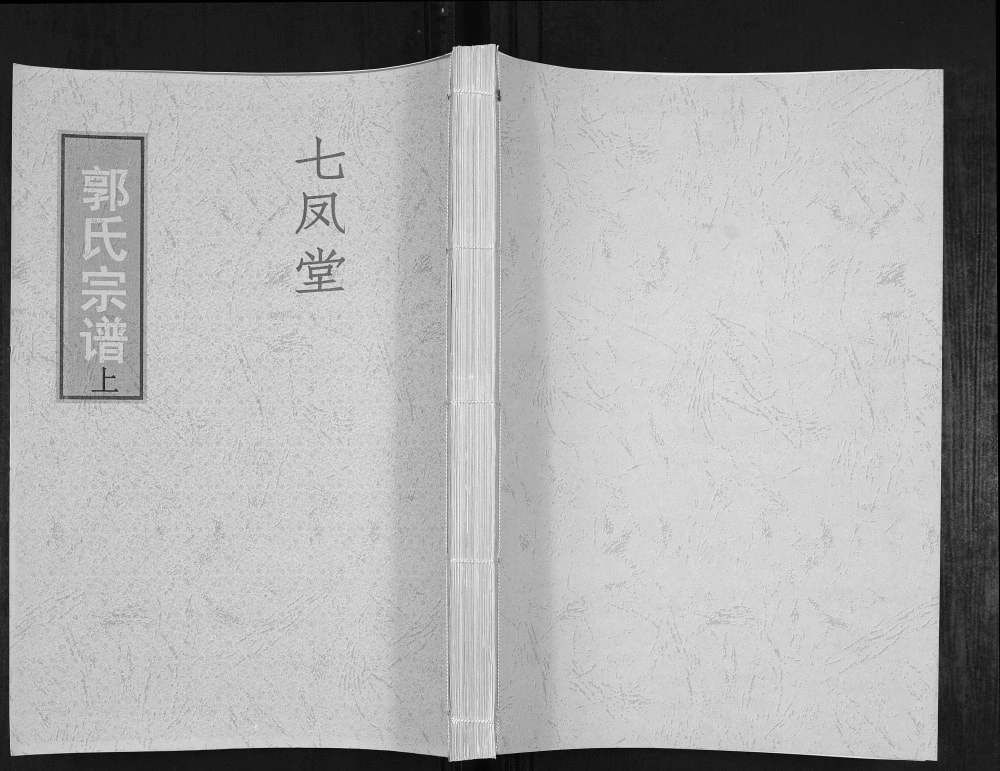 七凤堂
郭氏宗谱
上